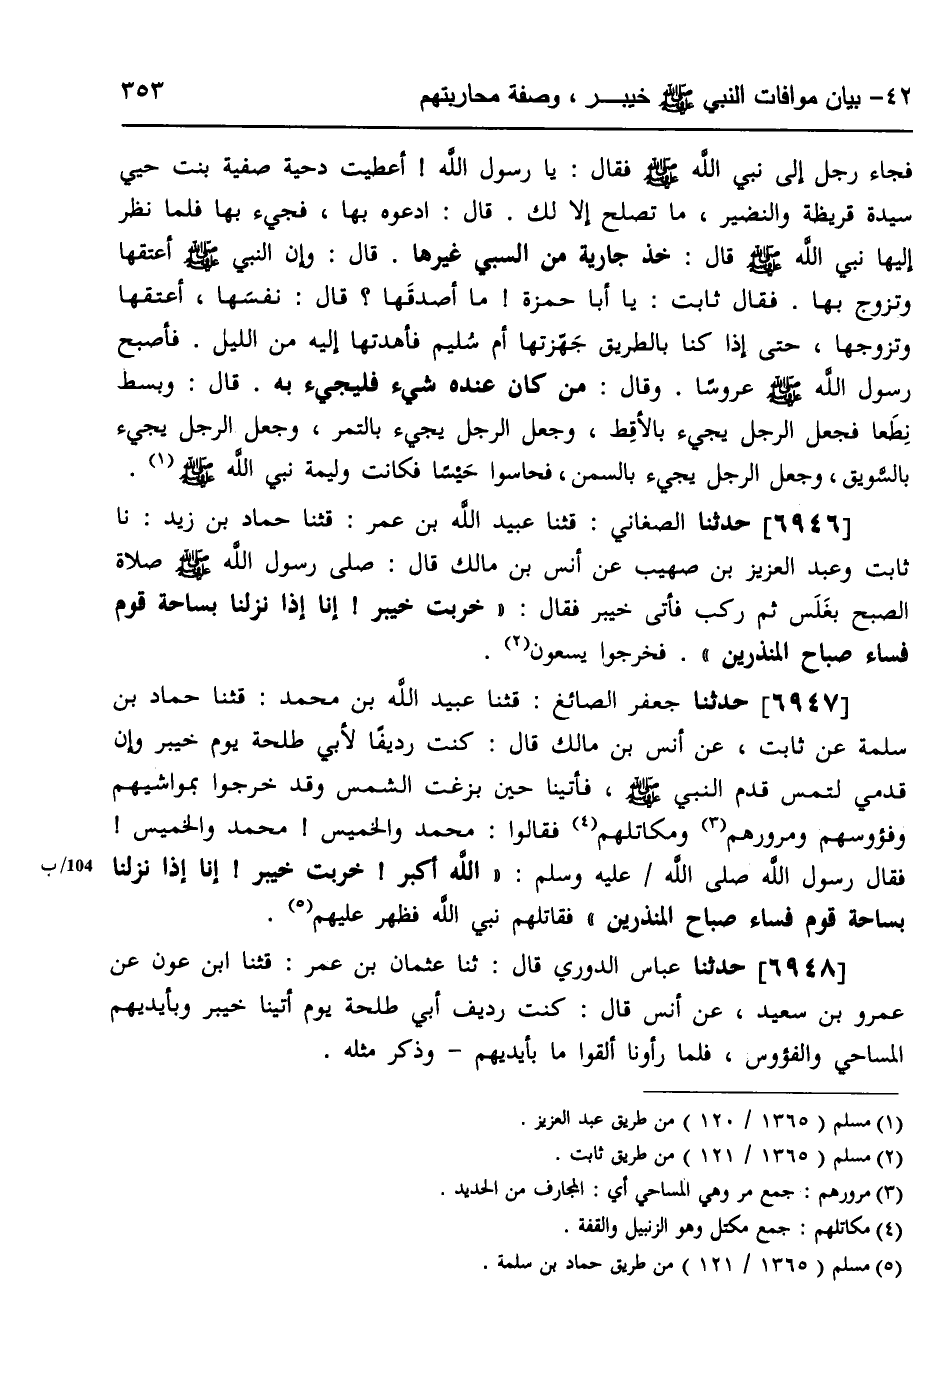 ٤٢- بيان موافات النبي ﷺ خيبـــر ، وصفة محاربتهم ٣٥٣
فجاء رجل إلى نبي اللَّه ﷺ فقال : يا رسول اللَّه ! أعطيت دحية صفية بنت حيي
سيدة قريظة والنضير ، ما تصلح إلا لك . قال : ادعوه بها ، فجيء بها فلما نظر
إليها نبي اللَّه ﷺ قال : خذ جارية من السبي غيرها . قال : وإن النبي ﷺ أعتقها
وتزوج بها . فقال ثابت : يا أبا حمزة ! ما أصدقَها ؟ قال : نفسَها ، أعتقها
وتزوجها ، حتى إذا كنا بالطريق جَهّزتها أم سُليم فأهدتها إليه من الليل . فأصبح
رسول اللَّه ﷺ عروسًا . وقال : من كان عنده شيء فليجيء به . قال : وبسط
نِطَعا فجعل الرجل يجيء بالأقِط ، وجعل الرجل يجيء بالتمر ، وجعل الرجل يجيء
بالسَّويق ، وجعل الرجل يجيء بالسمن ، فحاسوا حَيْسًا فكانت وليمة نبي اللَّه ﷺ (١) .
[٦٩٤٦] حدثنا الصغاني : قثنا عبيد اللَّه بن عمر : قثنا حماد بن زيد : نا
ثابت وعبد العزيز بن صهيب عن أنس بن مالك قال : صلى رسول اللَّه ﷺ صلاة
الصبح بغَلَس ثم ركب فأتى خيبر فقال : « خربت خيبر ! إنا إذا نزلنا بساحة قوم
فساء صباح المنذرين » . فخرجوا يسعون(٢) .
[٦٩٤٧] حدثنا جعفر الصائغ : قثنا عبيد اللَّه بن محمد : قثنا حماد بن
سلمة عن ثابت ، عن أنس بن مالك قال : كنت رديفًا لأبي طلحة يوم خيبر وإن
قدمي لتمس قدم النبي ﷺ ، فأتينا حين بزغت الشمس وقد خرجوا بمواشيهم
وفؤوسهم ومرورهم(٣) ومكاتلهم(٤) فقالوا : محمد والخميس ! محمد والخميس !
فقال رسول اللَّه صلى اللَّه / عليه وسلم : « اللَّه أكبر ! خربت خيبر ! إنا إذا نزلنا 104/ب
بساحة قوم فساء صباح المنذرين » فقاتلهم نبي اللَّه فظهر عليهم(٥) .
[٦٩٤٨] حدثنا عباس الدوري قال : ثنا عثمان بن عمر : قثنا ابن عون عن
عمرو بن سعيد ، عن أنس قال : كنت رديف أبي طلحة يوم أتينا خيبر وبأيديهم
المساحي والفؤوس ، فلما رأونا ألقوا ما بأيديهم – وذكر مثله .
(١) مسلم ( ١٣٦٥ / ١٢٠ ) من طريق عبد العزيز .
(٢) مسلم ( ١٣٦٥ / ١٢١ ) من طريق ثابت .
(٣) مرورهم : جمع مر وهي المساحي أي : المجارف من الحديد .
(٤) مكاتلهم : جمع مكتل وهو الزنبيل والقفة .
(٥) مسلم ( ١٣٦٥ / ١٢١ ) من طريق حماد بن سلمة .